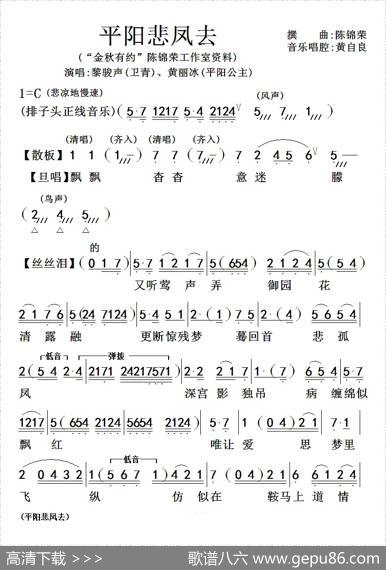 平阳悲凤去
(“金秋有约”陈锦荣工作室资料)
撰 曲:陈锦荣
音乐唱腔:黄自良
演唱:黎骏声(卫青)、黄丽冰(平阳公主)
1=C (悲凉地慢速)
(排子头正线音乐) (5·7 1217 5·4 2124 V (风声) 5 7 1)
(清唱) (齐入) (清唱) (齐入)
【散板】 1 2 (12) 7 1 (71) 7 2 4 5 6 V
【旦唱】飘飘 杳杳 意迷 朦
(鸟声)
(2 4 5)
的
【丝丝泪】(0 1 7) 5·7 1 2 1 7 5(654) 2·1 2 4 4·5
又听莺 声弄 御园 花
2 1 7 6 5(24 7124) 5·4 2·1 7·1 2(17) 5·7 1·
清露融 更断惊残梦 蓦回首 悲孤
低音 弹拨
2(5 4 2·4 2171 24217571) 2·1 5·4 2(04) 5·7 1·2
凤 深宫影 独吊 病缠绵似
1217 5(654 5654 2124) 5·7 1(04) 2·1 7·5
飘红 唯让爱 思梦里
低音
2 0 4 3 2 1(5 6 7 1) 6·5 1·(04) 5·1 2·1 7·1
飞 纵 仿似在 鞍马上道情
(平阳悲凤去)
高清下载 >>>
歌谱八六 www.gepu86.com